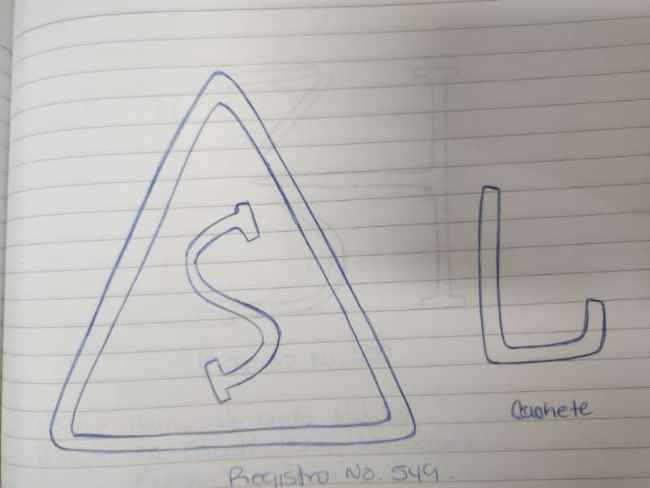 S
L
Cachete
Registro No. 549.